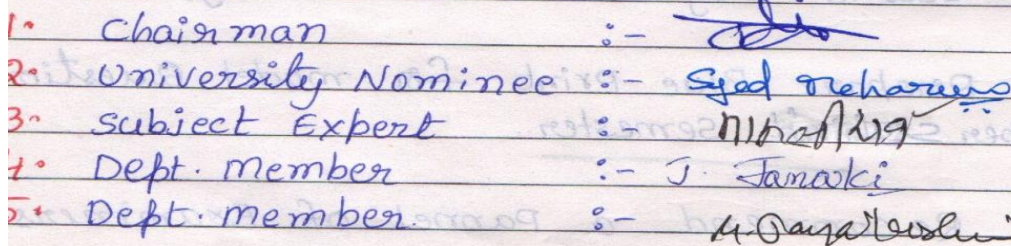 1. Chairman :-
2. University Nominee :- Syed
3. Subject Expert :-
4. Dept. Member :- J. Janaki
5. Dept. Member. :-